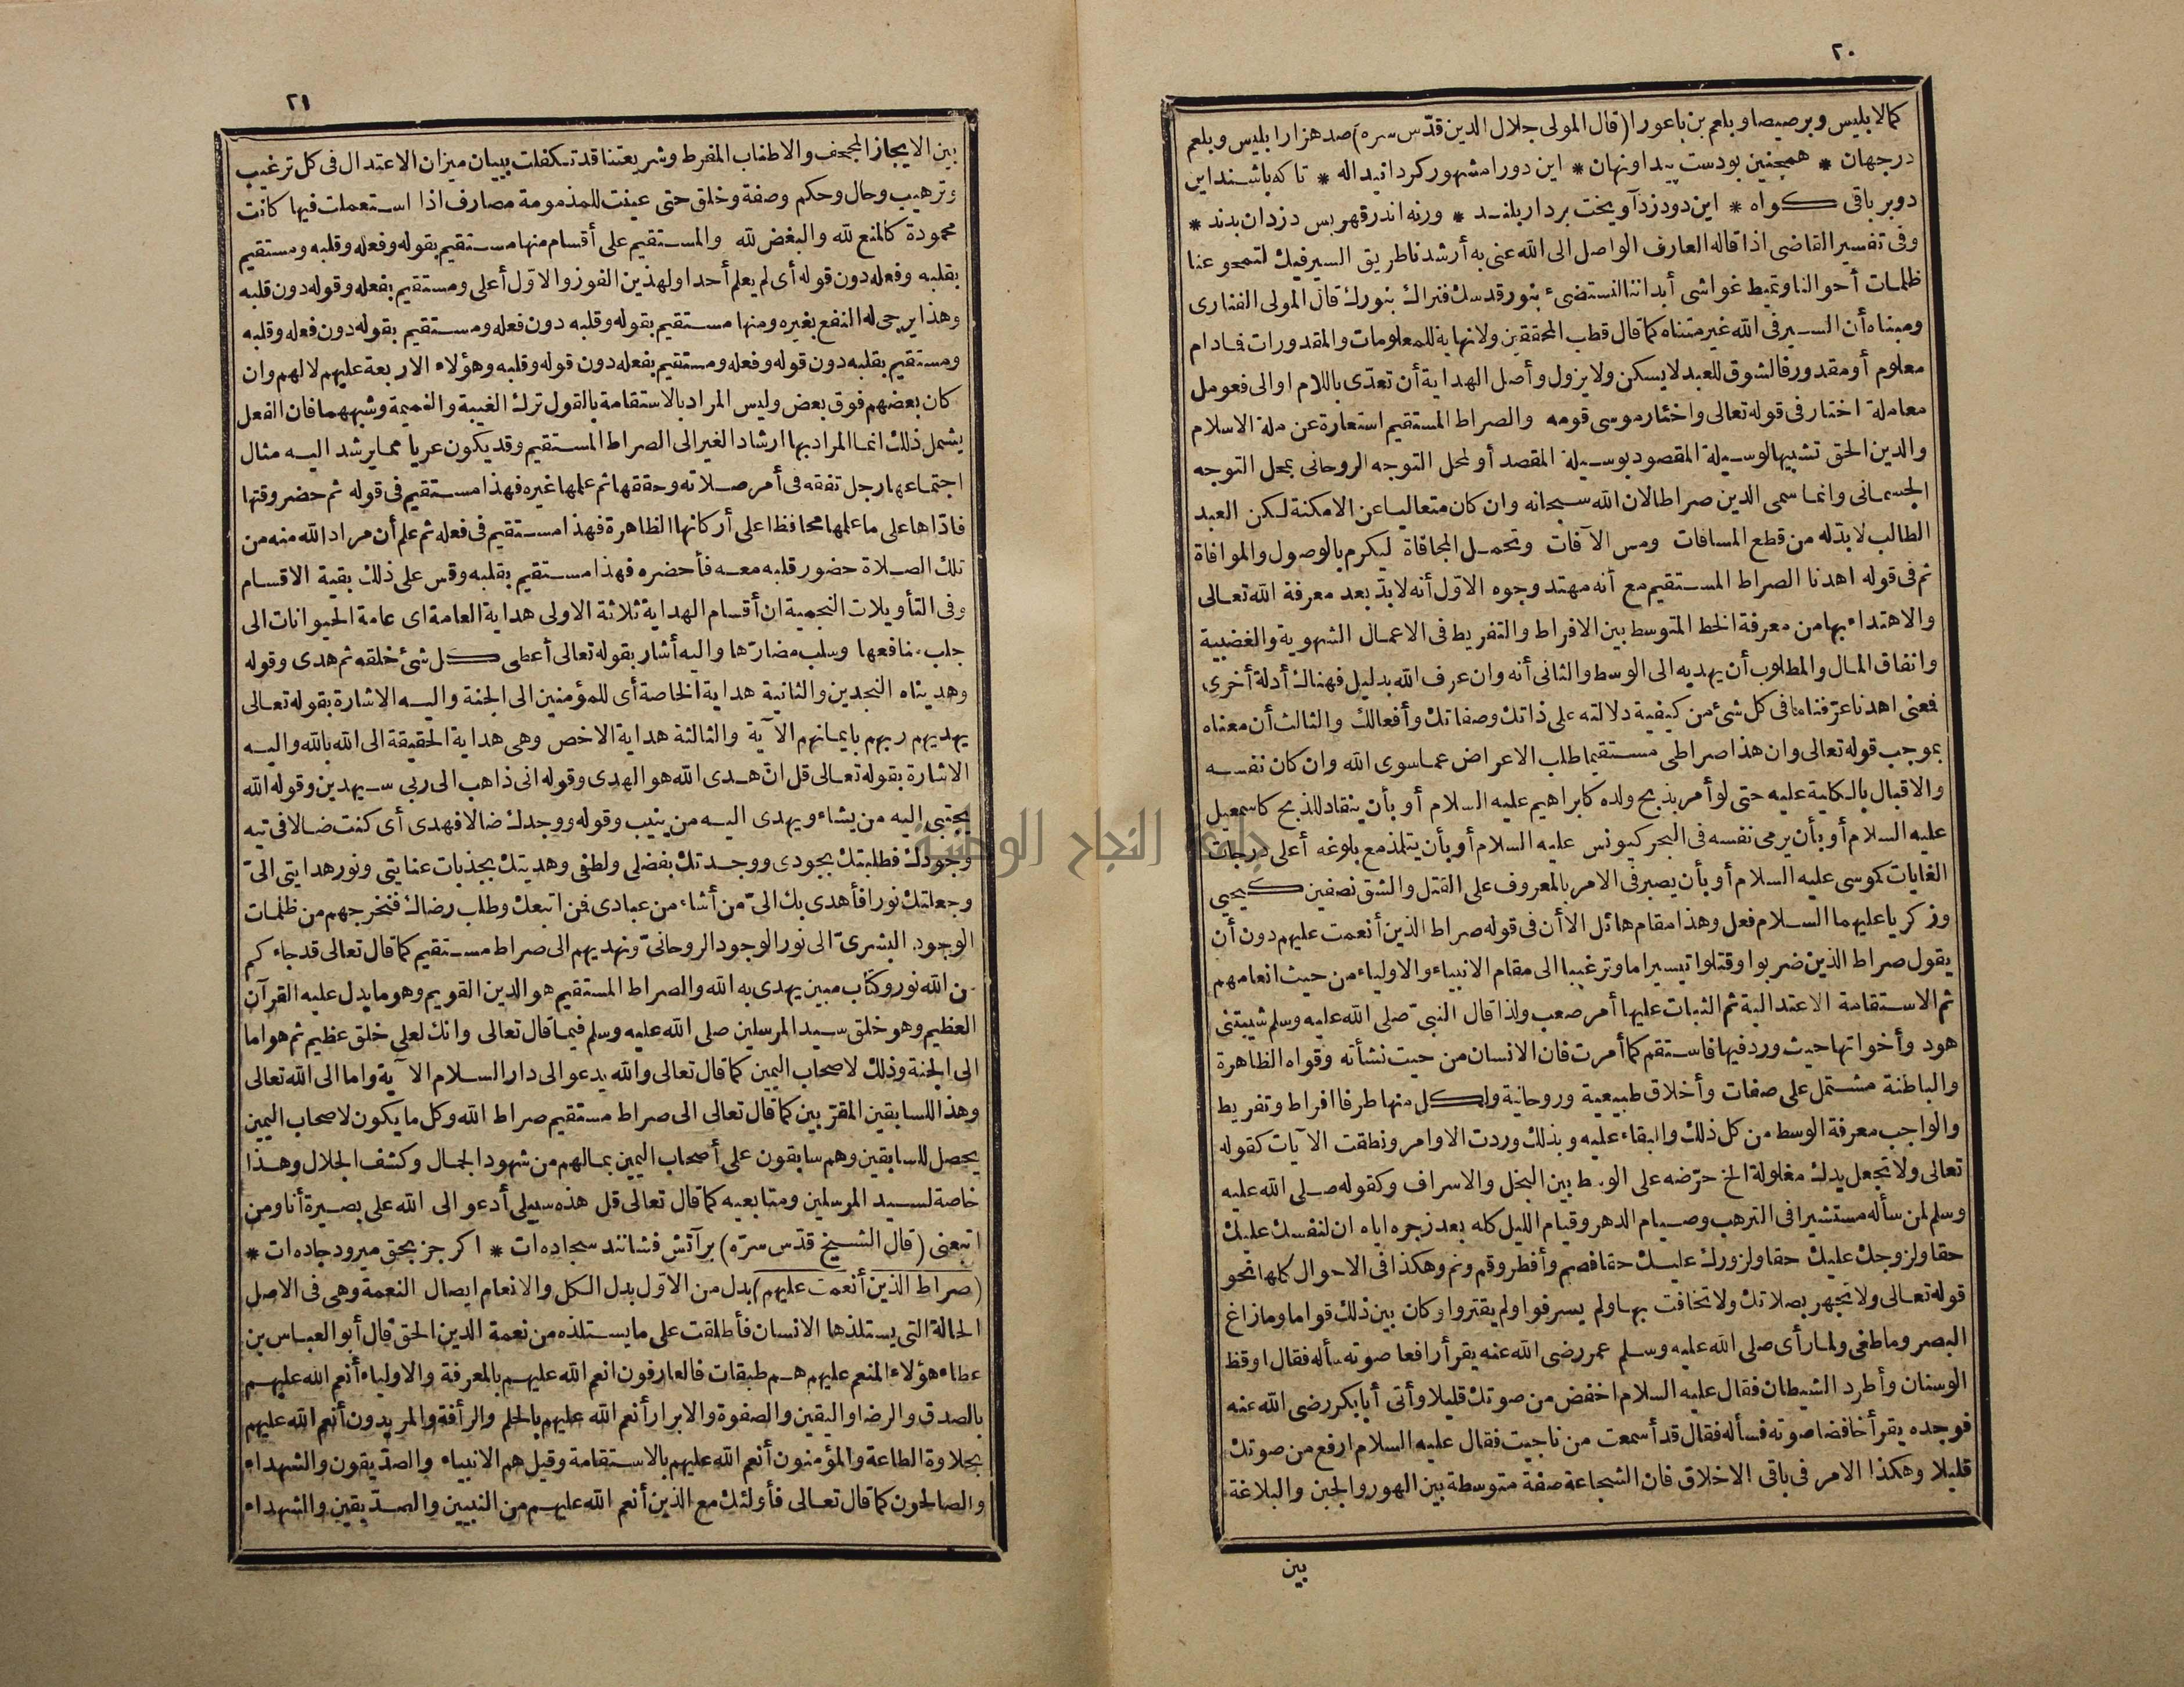 ٢٠
كمالا بليس وبرصيصا وبلعم بن باعورا (قال المولى جلال الدين قدّس سره) صد هزار ابليس وبلعم
درجهان * همچنين بودست پيدا ونهان * اين دورا مشهور كردانيد اله * تا كه باشند اين
دو بر باقى كواه * اين دو دزد آويخت بردار بلنـد * ورنه اندر قهر بس دزدان بدند *
وفى تفسير القاضى اذا قاله العارف الواصل الى الله عنى به أرشدنا طريق السير فيك لتمحو عنا
ظلمات أحوالنا وتميط غواشى أبداننا لنستضىء بنور قدسك فنراك بنورك قال المولى الفنارى
ومبناه أن السـير فى الله غير متناه كما قال قطب المحققين ولا نهاية للمعلومات والمقدورات فـادام
معلوم أو مقدور فالشوق للعبد لا يسكن ولا يزول وأصل الهداية أن تعدّى باللام او الى فعومل
معاملة اختار فى قوله تعالى واختار موسى قومه والصراط المستقيم استعارة عن ملة الاسلام
والدين الحق تشبيها لوسيلة المقصود بوسيلة المقصد أو لمحل التوجه الروحانى بمحل التوجه
الجسمانى وانما سمى الدين صراطا لان الله سـبحانه وان كان متعاليـا عن الامكنة لـكن العبد
الطالب لا بدّ له من قطع المسافات ومس الآفات وتحمـل المجافاة ليكرم بالوصول والموافاة
ثم فى قوله اهدنا الصراط المستقيم مع أنه مهتد وجوه الاوّل أنه لا بدّ بعد معرفة الله تعـالى
والاهتداء بها من معرفة الخط المتوسط بين الافراط والتفريط فى الاعمـال الشهوية والغضبية
وانفاق المـال والمطلوب أن يهديه الى الوسط والثانى أنه وان عرف الله بدليل فهناك أدلة أخرى
فعنى اهدنا عرّفنا ما فى كل شئ من كيفية دلالته على ذاتك وصفاتك وأفعالك والثالث أن معناه
بموجب قوله تعالى وان هذا صراطى مسـتقيما طلب الاعراض عـما سوى الله وان كان نفسـه
والاقبال بالـكلية عليه حتى لو أمر بذبح ولده كابراهيم عليه السلام أو بأن ينقاد للذبح كاسمعيل
عليه السلام أو بأن يرمى نفسه فى البحر كيونس عليه السلام أو بأن يتلمذ مع بلوغه أعلى درجات
الغايات كموسى عليه السلام أو بأن يصبر فى الامر بالمعروف على القتل والشق نصفين كـيحيى
وزكريا عليهما السـلام فعل وهذا مقام هائل الا أن فى قوله صراط الذين أنعمت عليهم دون أن
يقول صراط الذين ضربوا وقتلوا تيسيرا ما وترغيبا الى مقام الانبياء والاولياء من حيث انعامهم
ثم الاسـتقامة الاعتدالية ثم الثبات عليها أمر صعب ولذا قال النبىّ صلى الله عليه وسلم شيبتنى
هود وأخواتها حيث ورد فيها فاسـتقم كما أمرت فان الانسان من حيث نشأته وقواه الظاهرة
والباطنة مشـتمل على صفات وأخلاق طبيعية وروحانية ولـكل منها طرفا افراط وتفريط
والواجب معرفة الوسط من كل ذلك والبقاء عليه وبذلك وردت الاوامر ونطقت الآيات كقوله
تعالى ولا تجعل يدك مغلولة الخ حرّضه على الوسط بين البخل والاسراف وكقوله صـلى الله عليه
وسلم لمن سأله مستشيرا فى الترهب وصـيام الدهر وقيام الليل كله بعد زجره اياه ان لنفسك عليك
حقا ولزوجك عليك حقا ولزورك عليـك حقا فصم وأفطر وقم ونم وهكذا فى الاحوال كلها نحو
قوله تعـالى ولا تجهر بصلاتك ولا تخافت بهـا ولم يسرفوا ولم يقتروا وكان بين ذلك قواما وما زاغ
البصر وما طغى ولمـا رأى صلى الله عليه وسـلم عمر رضى الله عنه يقرأ رافعا صوته سأله فقال اوقظ
الوسنان وأطرد الشيطان فقال عليه السلام اخفض من صوتك قليلا وأتى أبا بكر رضى الله عنه
فوجده يقرأ خافضا صوته فسأله فقال قد أسمعت من ناجيت فقال عليه السلام ارفع من صوتك
قليلا وهكذا الامر فى باقى الاخلاق فان الشجاعة صفة متوسطة بين الهور والجبن والبلاغة
بين
٢١
بين الايجاز المجحف والاطناب المفرط وشريعتنا قد تـكفلت ببيان ميزان الاعتدال فى كل ترغيب
وترهيب وحال وحكم وصفة وخلق حتى عينت للمذمومة مصارف اذا اسـتعملت فيها كانت
محمودة كالمنع لله والبغض لله والمسـتقيم على أقسام منها مسـتقيم بقوله وفعله وقلبه ومستقيم
بقلبه وفعله دون قوله أى لم يعلم أحدا ولهذين الفوز والاوّل أعلى ومستقيم بفعله وقوله دون قلبه
وهذا يرجى له النفع بغيره ومنها مسـتقيم بقوله وقلبه دون فعله ومسـتقيم بقوله دون فعله وقلبه
ومستقيم بقلبه دون قوله وفعله ومستقيم بفعله دون قوله وقلبه وهؤلاء الاربعة عليهم لا لهم وان
كان بعضهم فوق بعض وليس المراد بالاستقامة بالقول ترك الغيبة والنميمة وشبههما فان الفعل
يشمل ذلك انمـا المراد بها ارشاد الغير الى الصراط المسـتقيم وقد يكون عريا ممـا يرشد اليـه مثال
اجتماعها رجل تفقه فى أمر صـلاته وحققها ثم علمها غيره فهذا مسـتقيم فى قوله ثم حضر وقتها
فادّاها على ما علمها محافظا على أركانها الظاهرة فهذا مسـتقيم فى فعله ثم علم أن مراد الله منه من
تلك الصـلاة حضور قلبه معـه فأحضره فهذا مسـتقيم بقلبه وقس على ذلك بقية الاقسام
وفى التأويلات النجمية ان أقسام الهداية ثلاثة الاولى هداية العامة اى عامة الحيوانات الى
جلب منافعها وسلب مضارّها واليه أشار بقوله تعالى أعطى كـل شئ خلقه ثم هدى وقوله
وهديناه النجدين والثانية هداية الخاصة أى للمؤمنين الى الجنة واليـه الاشارة بقوله تعـالى
يهديهم ربهم بايمـانهم الآية والثالثة هداية الاخص وهى هداية الحقيقة الى الله بالله واليـه
الاشارة بقوله تعـالى قل انّ هـدى الله هو الهدى وقوله انى ذاهب الى ربى سـيهدين وقوله الله
يجتبى اليه من يشاء ويهدى اليـه من ينيب وقوله ووجدك ضالا فهدى أى كنت ضـالا فى تيه
وجودك فطلبتك بجودى ووجـدتك بفضلى ولطفى وهديتك بجذبات عنايتى ونور هدايتى الىّ
وجعلتك نورا فأهدى بك الىّ من أشاء من عبادى فمن اتبعك وطلب رضاك فنخرجهم من ظلمات
الوجود البشرىّ الى نور الوجود الروحانىّ ونهديهم الى صراط مسـتقيم كما قال تعالى قد جاءكم
من الله نور وكتاب مبين يهدى به الله والصراط المستقيم هو الدين القويم وهو ما يدل عليه القرآن
العظيم وهو خلق سـيد المرسلين صلى الله عليه وسلم فيمـا قال تعالى وانك لعلى خلق عظيم ثم هو اما
الى الجنة وذلك لاصحاب اليمين كما قال تعالى والله يدعو الى دار السـلام الآية واما الى الله تعالى
وهذا للسابقين المقرّبين كما قال تعالى الى صراط مستقيم صراط الله وكل ما يكون لاصحاب اليمين
يحصل للسابقين وهم سابقون على أصحاب اليمين بمـالهم من شهود الجمـال وكشف الجلال وهـذا
خاصة لسـيد المرسلين ومتابعيه كما قال تعالى قل هذه سبيلى أدعو الى الله على بصيرة أنا ومن
اتبعنى (قال الشـيخ قدّس سرّه) بر آتش فشانند سجاده ات * اكر جز بحق ميرود جاده ات *
(صراط الذين أنعمت عليهم) بدل من الاوّل بدل الـكل والانعام ايصال النعمة وهى فى الاصل
الحالة التى يستلذها الانسان فأطلقت على ما يسـتلذه من نعمة الدين الحق قال أبو العبـاس بن
عطاء هؤلاء المنعم عليهم هـم طبقات فالعارفون انعم الله عليهـم بالمعرفة والاولياء أنعم الله عليهـم
بالصدق والرضا واليقين والصفوة والابرار أنعم الله عليهم بالحلم والرأفة والمريدون أنعم الله عليهم
بحلاوة الطاعة والمؤمنون أنعم الله عليهم بالاسـتقامة وقيل هم الانبياء والصدّيقون والشهداء
والصالحون كما قال تعـالى فأولئك مع الذين أنعم الله عليهـم من النبيين والصـدّيقين والشهداء
جامعة النجاح الوطنية